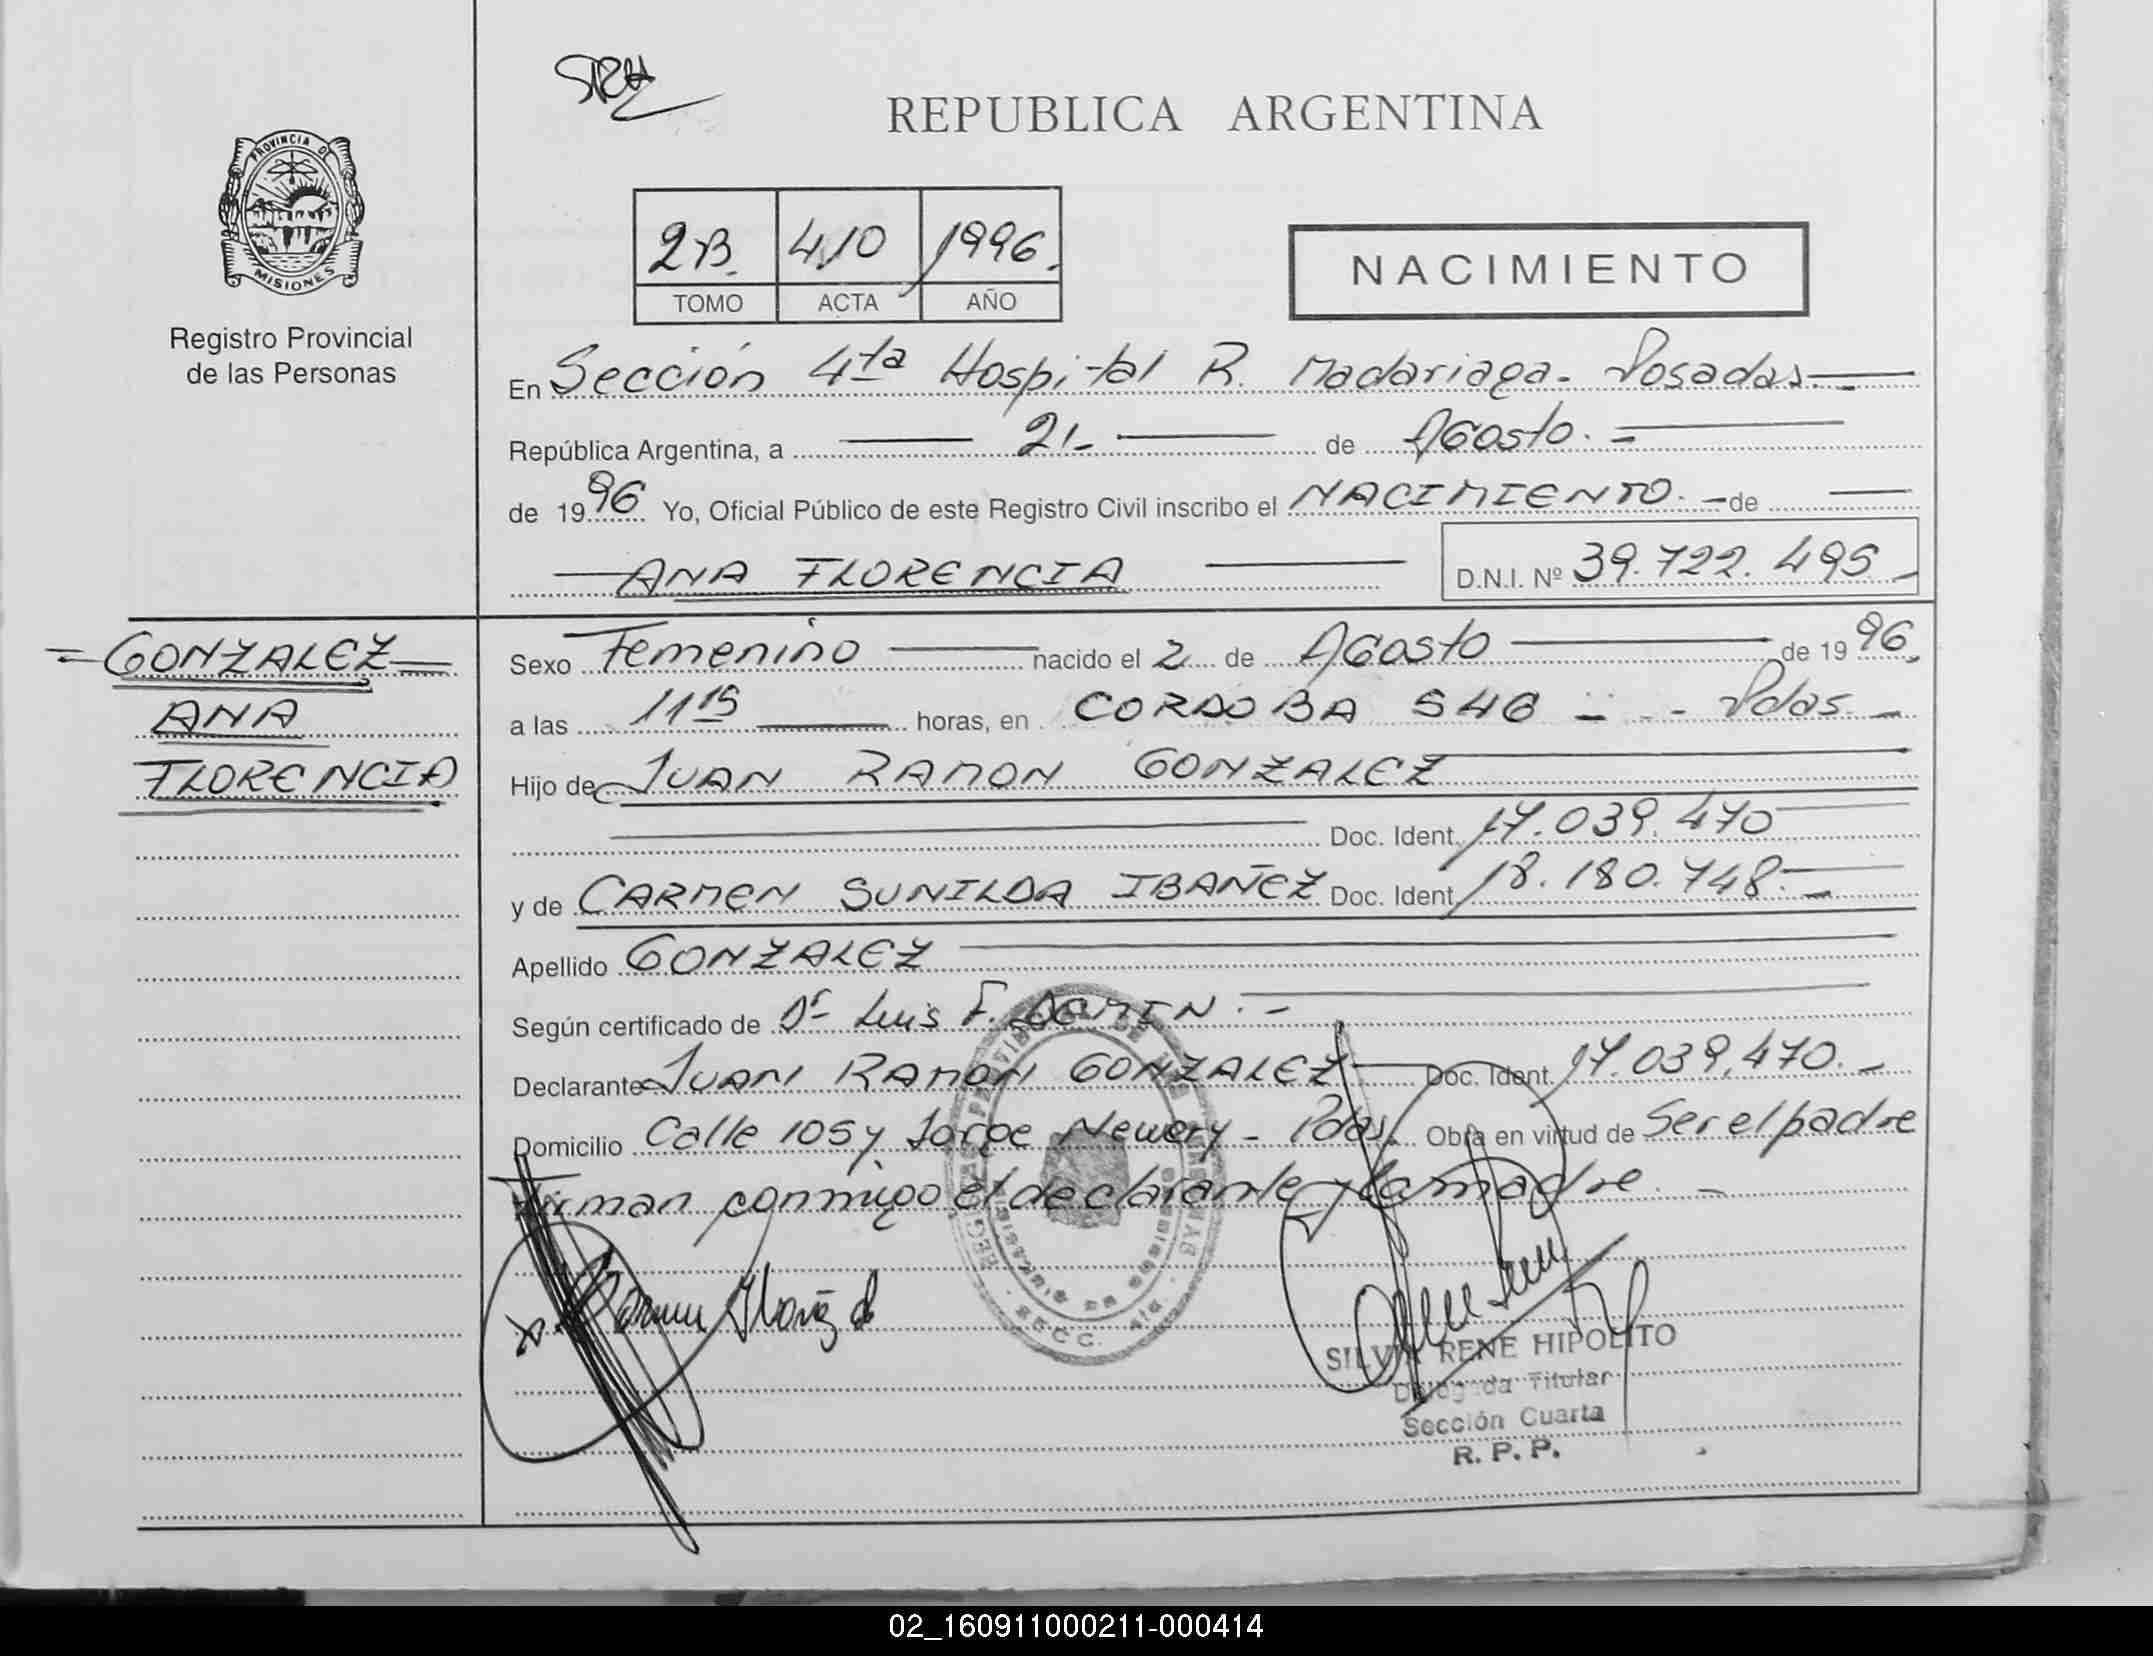 REPUBLICA ARGENTINA
PROVINCIA DE
MISIONES
Registro Provincial
de las Personas
2B. 410 1996.
TOMO ACTA AÑO
NACIMIENTO
En Sección 4ta Hospital R. Madariaga - Posadas. -
República Argentina, a 21- de Agosto. -
de 1996 Yo, Oficial Público de este Registro Civil inscribo el NACIMIENTO. - de
ANA FLORENCIA
D.N.I. Nº 39.722.495 -
= GONZALEZ
ANA
FLORENCIA
Sexo Femenino nacido el 2 de Agosto de 1996.
a las 11 15 horas, en CORDOBA 546 - - - Pdas. -
Hijo de JUAN RAMON GONZALEZ
Doc. Ident. 17.039.470
y de CARMEN SUNILDA IBAÑEZ Doc. Ident. 18.180.748. -
Apellido GONZALEZ
Según certificado de Dr Luis F.
Declarante JUAN RAMON GONZALEZ Doc. Ident. 17.039.470. -
Domicilio Calle 105 y Jorge Newery - Pdas. Obra en virtud de Ser el padre
Firman conmigo el declarante y la madre. -
SILVIA RENE HIPOLITO
Delegada Titular
Sección Cuarta
R. P. P.
02_160911000211-000414